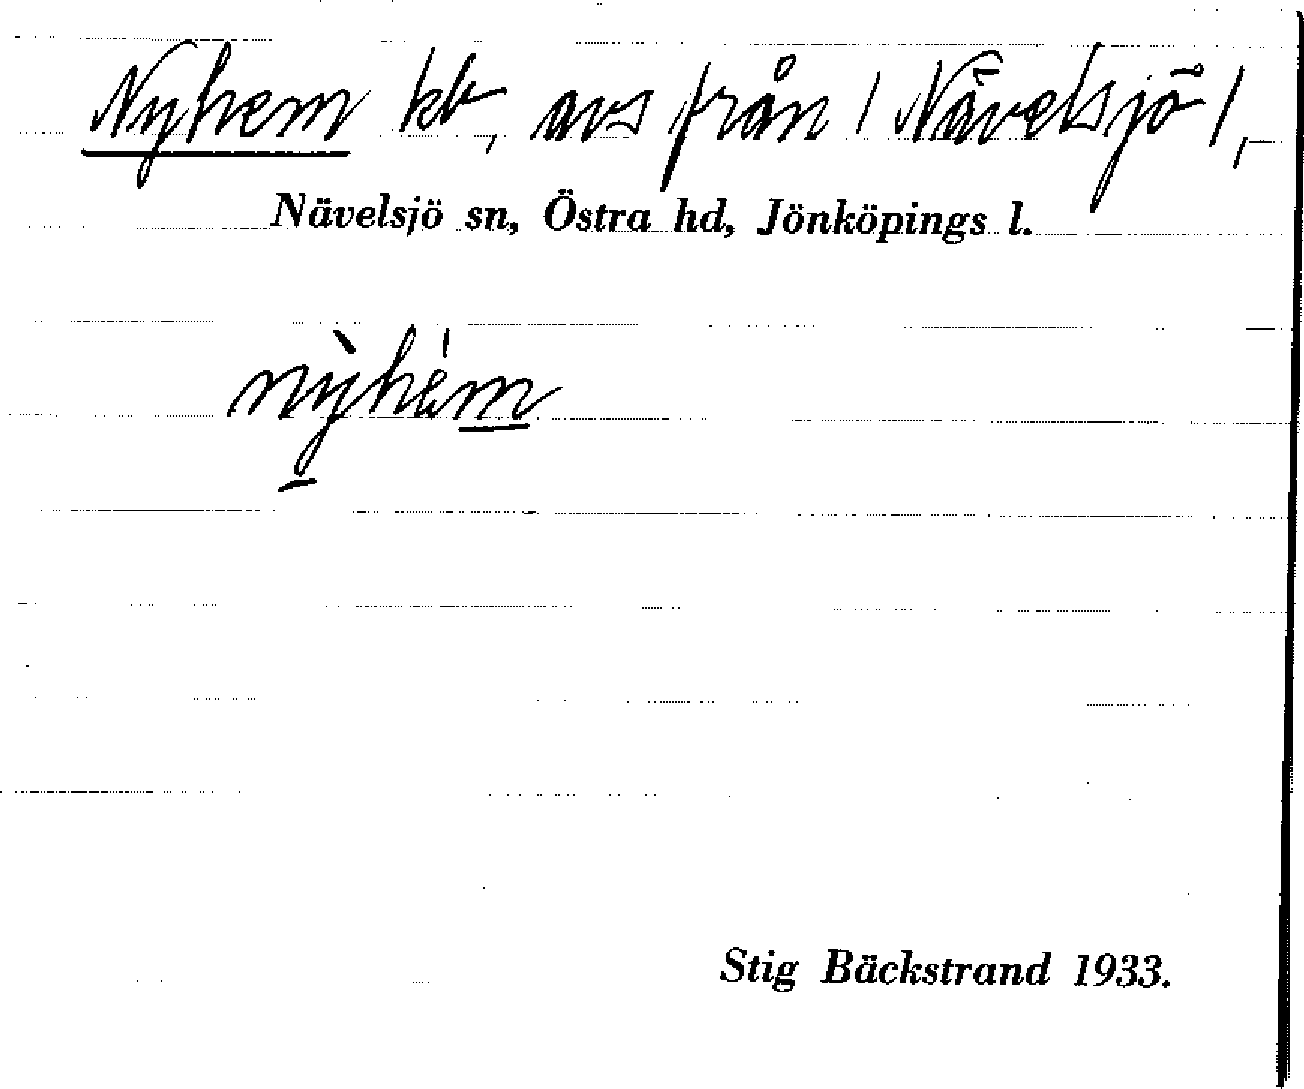 Nyhem kb, avs från / Nävelsjö /,
Nävelsjö sn, Östra hd, Jönköpings l.
nỳhém
Stig Bäckstrand 1933.